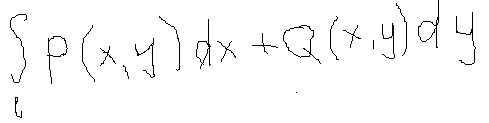 ∫ P(x,y)dx + Q(x,y)dy